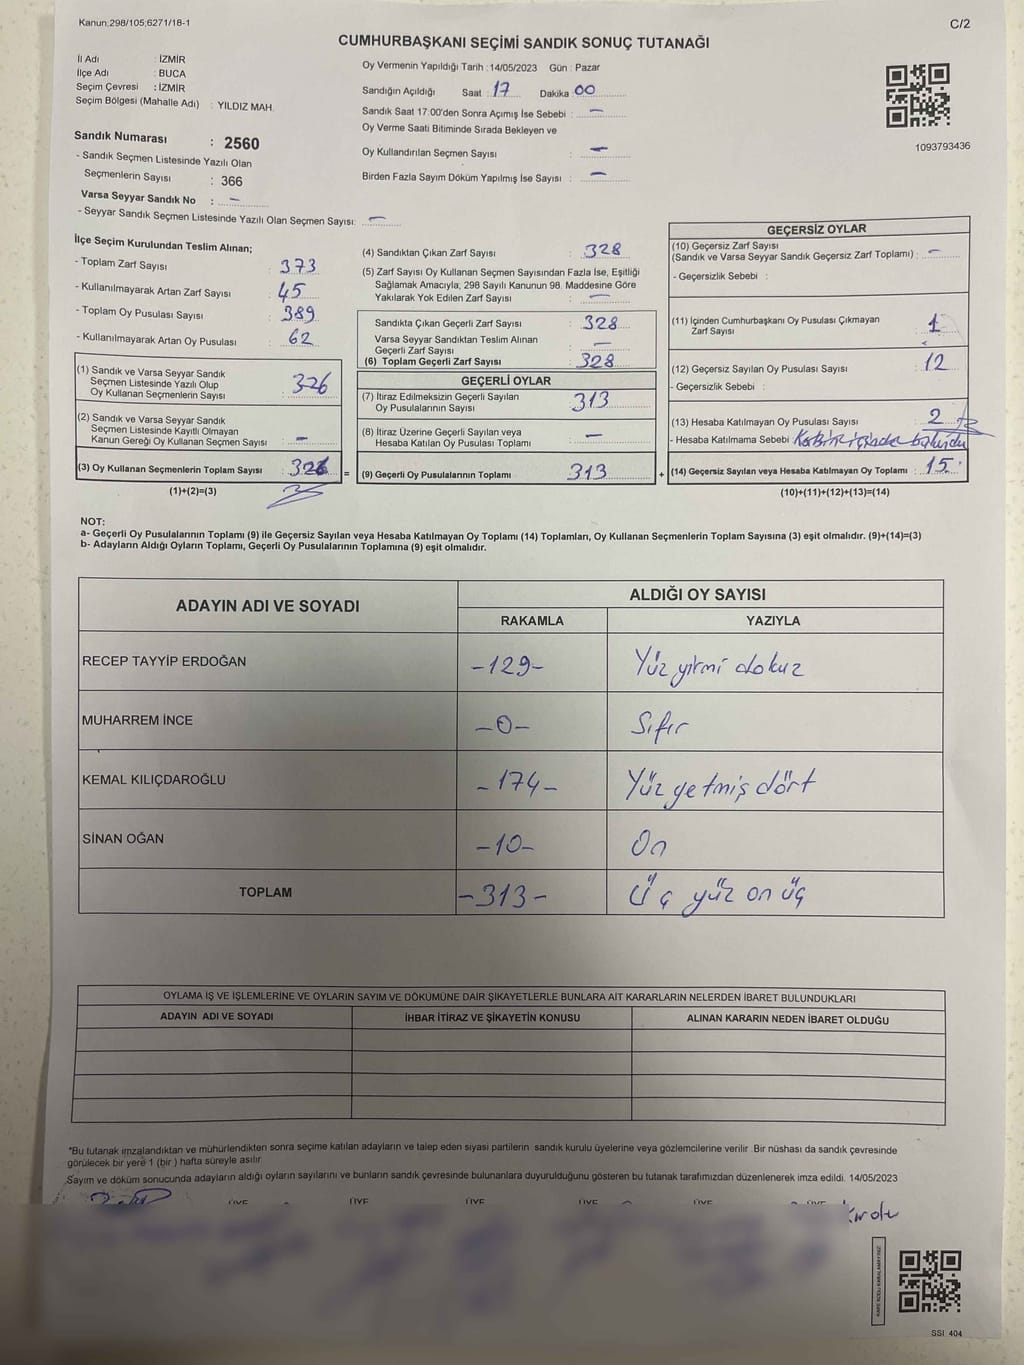 Kanun;298/105;6271/18-1
C/2
CUMHURBAŞKANI SEÇİMİ SANDIK SONUÇ TUTANAĞI
İl Adı : İZMİR
İlçe Adı : BUCA
Seçim Çevresi : İZMİR
Seçim Bölgesi (Mahalle Adı) : YILDIZ MAH.
Sandık Numarası : 2560
- Sandık Seçmen Listesinde Yazılı Olan
Seçmenlerin Sayısı : 366
Varsa Seyyar Sandık No : -
- Seyyar Sandık Seçmen Listesinde Yazılı Olan Seçmen Sayısı: -
Oy Vermenin Yapıldığı Tarih : 14/05/2023 Gün : Pazar
Sandığın Açıldığı Saat : 17 Dakika : 00
Sandık Saat 17:00'den Sonra Açımış İse Sebebi : -
Oy Verme Saati Bitiminde Sırada Bekleyen ve
Oy Kullandırılan Seçmen Sayısı : -
Birden Fazla Sayım Döküm Yapılmış İse Sayısı : -
1093793436
İlçe Seçim Kurulundan Teslim Alınan;
- Toplam Zarf Sayısı : 373
- Kullanılmayarak Artan Zarf Sayısı : 45
- Toplam Oy Pusulası Sayısı : 389
- Kullanılmayarak Artan Oy Pusulası : 62
(1) Sandık ve Varsa Seyyar Sandık
Seçmen Listesinde Yazılı Olup
Oy Kullanan Seçmenlerin Sayısı : 326
(2) Sandık ve Varsa Seyyar Sandık
Seçmen Listesinde Kayıtlı Olmayan
Kanun Gereği Oy Kullanan Seçmen Sayısı : -
(3) Oy Kullanan Seçmenlerin Toplam Sayısı : 328 =
(1)+(2)=(3)
(4) Sandıktan Çıkan Zarf Sayısı : 328
(5) Zarf Sayısı Oy Kullanan Seçmen Sayısından Fazla İse, Eşitliği
Sağlamak Amacıyla, 298 Sayılı Kanunun 98. Maddesine Göre
Yakılarak Yok Edilen Zarf Sayısı : -
Sandıkta Çıkan Geçerli Zarf Sayısı : 328
Varsa Seyyar Sandıktan Teslim Alınan
Geçerli Zarf Sayısı : -
(6) Toplam Geçerli Zarf Sayısı : 328
GEÇERLİ OYLAR
(7) İtiraz Edilmeksizin Geçerli Sayılan
Oy Pusulalarının Sayısı : 313
(8) İtiraz Üzerine Geçerli Sayılan veya
Hesaba Katılan Oy Pusulası Toplamı : -
(9) Geçerli Oy Pusulalarının Toplamı : 313 +
GEÇERSİZ OYLAR
(10) Geçersiz Zarf Sayısı
(Sandık ve Varsa Seyyar Sandık Geçersiz Zarf Toplamı) : -
- Geçersizlik Sebebi :
(11) İçinden Cumhurbaşkanı Oy Pusulası Çıkmayan
Zarf Sayısı : 1
(12) Geçersiz Sayılan Oy Pusulası Sayısı : 12
- Geçersizlik Sebebi :
(13) Hesaba Katılmayan Oy Pusulası Sayısı : 2
- Hesaba Katılmama Sebebi : Kabin içinde bulundu
(14) Geçersiz Sayılan veya Hesaba Katılmayan Oy Toplamı : 15
(10)+(11)+(12)+(13)=(14)
NOT:
a- Geçerli Oy Pusulalarının Toplamı (9) ile Geçersiz Sayılan veya Hesaba Katılmayan Oy Toplamı (14) Toplamları, Oy Kullanan Seçmenlerin Toplam Sayısına (3) eşit olmalıdır. (9)+(14)=(3)
b- Adayların Aldığı Oyların Toplamı, Geçerli Oy Pusulalarının Toplamına (9) eşit olmalıdır.
ADAYIN ADI VE SOYADI
ALDIĞI OY SAYISI
RAKAMLA YAZIYLA
RECEP TAYYİP ERDOĞAN -129- Yüz yirmi dokuz
MUHARREM İNCE -0- Sıfır
KEMAL KILIÇDAROĞLU -174- Yüz yetmiş dört
SİNAN OĞAN -10- On
TOPLAM -313- Üç yüz on üç
OYLAMA İŞ VE İŞLEMLERİNE VE OYLARIN SAYIM VE DÖKÜMÜNE DAİR ŞİKAYETLERLE BUNLARA AİT KARARLARIN NELERDEN İBARET BULUNDUKLARI
ADAYIN ADI VE SOYADI İHBAR İTİRAZ VE ŞİKAYETİN KONUSU ALINAN KARARIN NEDEN İBARET OLDUĞU
*Bu tutanak imzalandıktan ve mühürlendikten sonra seçime katılan adayların ve talep eden siyasi partilerin sandık kurulu üyelerine veya gözlemcilerine verilir. Bir nüshası da sandık çevresinde
görülecek bir yere 1 (bir ) hafta süreyle asılır.
Sayım ve döküm sonucunda adayların aldığı oyların sayılarını ve bunların sandık çevresinde bulunanlara duyurulduğunu gösteren bu tutanak tarafımızdan düzenlenerek imza edildi. 14/05/2023
ÜYE ÜYE ÜYE ÜYE ÜYE ÜYE
KARE KODU KARALAMAYINIZ
SSI 404